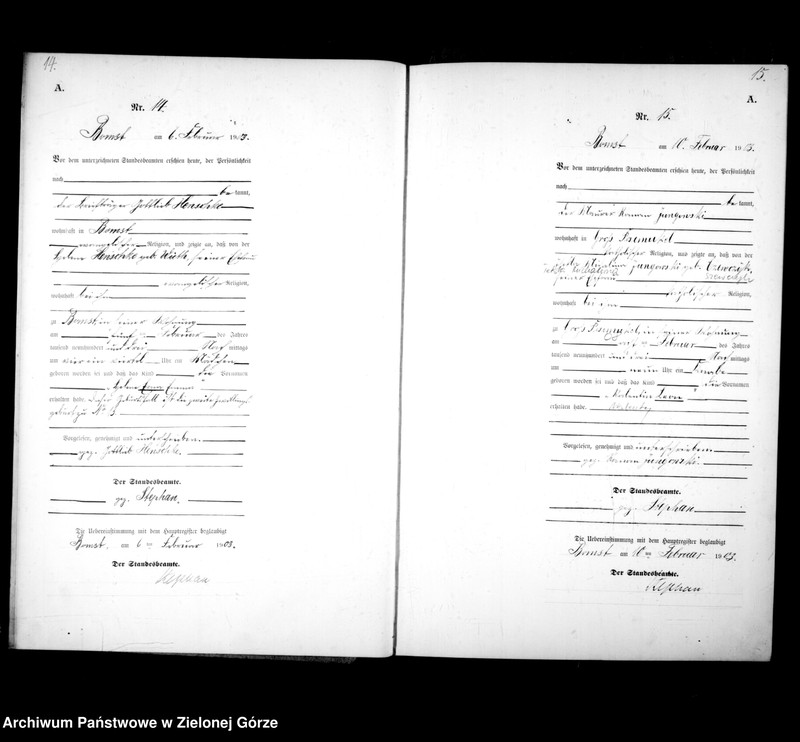 14.
A.
Nr. 14.
Bomst am 6. Februar 1903.
Vor dem unterzeichneten Standesbeamten erschien heute, der Persönlichkeit
nach
be kannt,
der Gottlieb Henschke
wohnhaft in Bomst
evangelischer Religion, und zeigte an, daß von der
Henschke geb. seiner Ehefrau
evangelischer Religion,
wohnhaft bei ihm
zu Bomst in seiner Wohnung
am fünften Februar des Jahres
tausend neunhundert und drei Nach mittags
um Uhr ein Mädchen
geboren worden sei und daß das Kind die Vornamen
erhalten habe.
Vorgelesen, genehmigt und unterschrieben.
gez. Gottlieb Henschke.
Der Standesbeamte.
gez. Stephan.
Die Uebereinstimmung mit dem Hauptregister beglaubigt
Bomst, am 6 ten Februar 1903.
Der Standesbeamte.
Stephan
15.
A.
Nr. 15.
Bomst am 10. Februar 1903.
Vor dem unterzeichneten Standesbeamten erschien heute, der Persönlichkeit
nach
be kannt,
der Maurer Roman Jungowski
wohnhaft in Gross
katholischer Religion, und zeigte an, daß von der
Jungowski geb.
seiner Ehefrau
katholischer Religion,
wohnhaft bei ihm
zu Gross in seiner Wohnung
am Februar des Jahres
tausend neunhundert und drei Nach mittags
um neun Uhr ein Knabe
geboren worden sei und daß das Kind die Vornamen
erhalten habe.
Vorgelesen, genehmigt und unterschrieben.
gez. Roman Jungowski.
Der Standesbeamte.
gez. Stephan
Die Uebereinstimmung mit dem Hauptregister beglaubigt
Bomst am 10 ten Februar 1903.
Der Standesbeamte.
Stephan
Archiwum Państwowe w Zielonej Górze